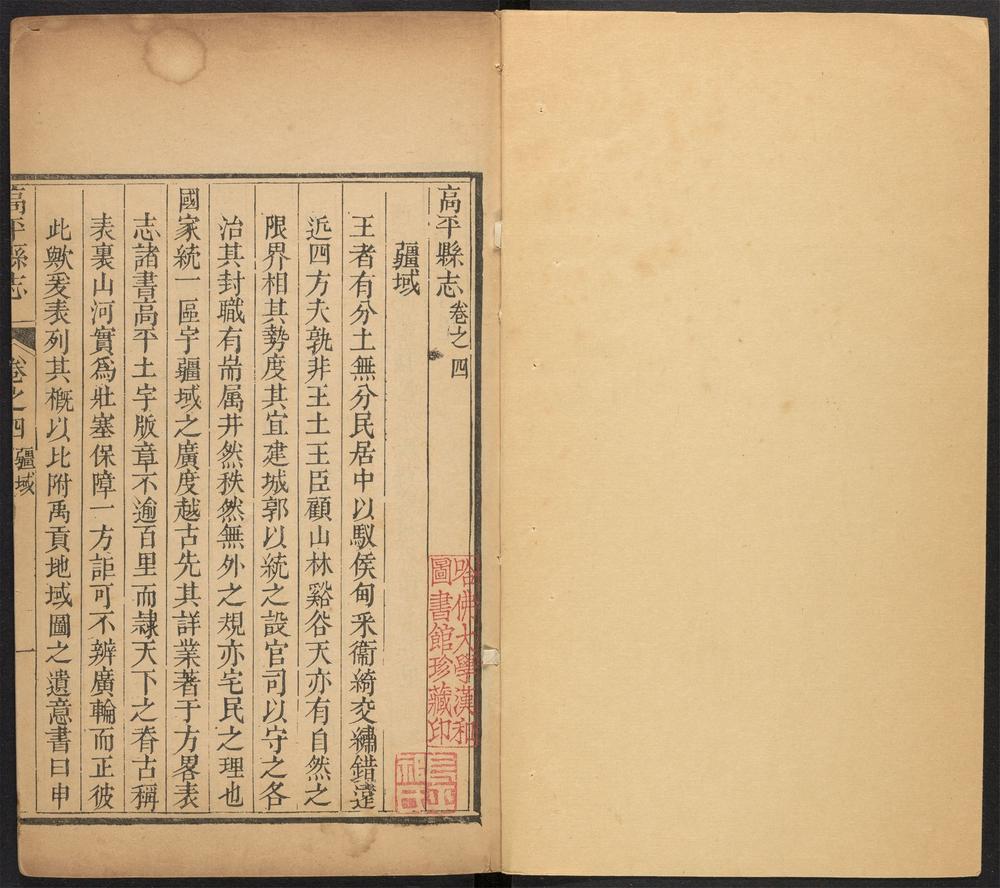 高平縣志卷之四
疆域
王者有分土無分民居中以馭侯甸采衞綺交繡錯遠
近四方夫孰非王土王臣顧山林谿谷天亦有自然之
限界相其勢度其宜建城郭以統之設官司以守之各
治其封職有耑属井然秩然無外之規亦宅民之理也
國家統一區宇疆域之廣度越古先其詳業著于方畧表
志諸書高平土宇版章不逾百里而隷天下之脊古稱
表裏山河實為壯塞保障一方詎可不辨廣輪而正彼
此歟爰表列其概以比附禹貢地域圖之遺意書曰申
高平縣志
卷之四
疆域
一
哈佛大學漢和
圖書館珍藏印